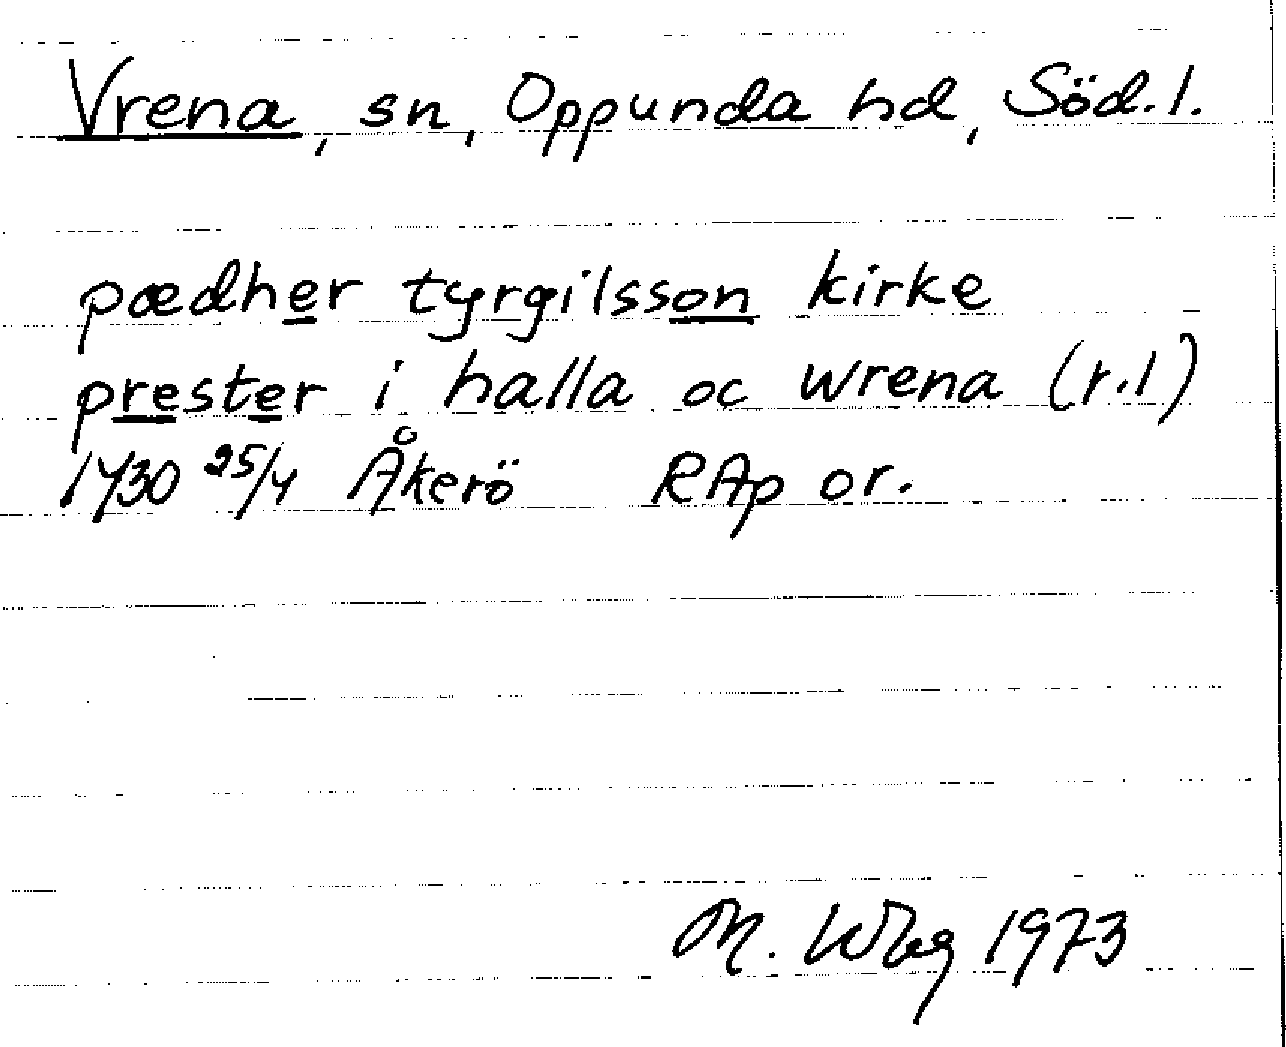 Vrena, sn, Oppunda hd, Söd.l.
pædher tyrgilsson kirke
prester i halla oc wrena (r.l)
1430 25/4 Åkerö RAp or.
M. Wbg 1973